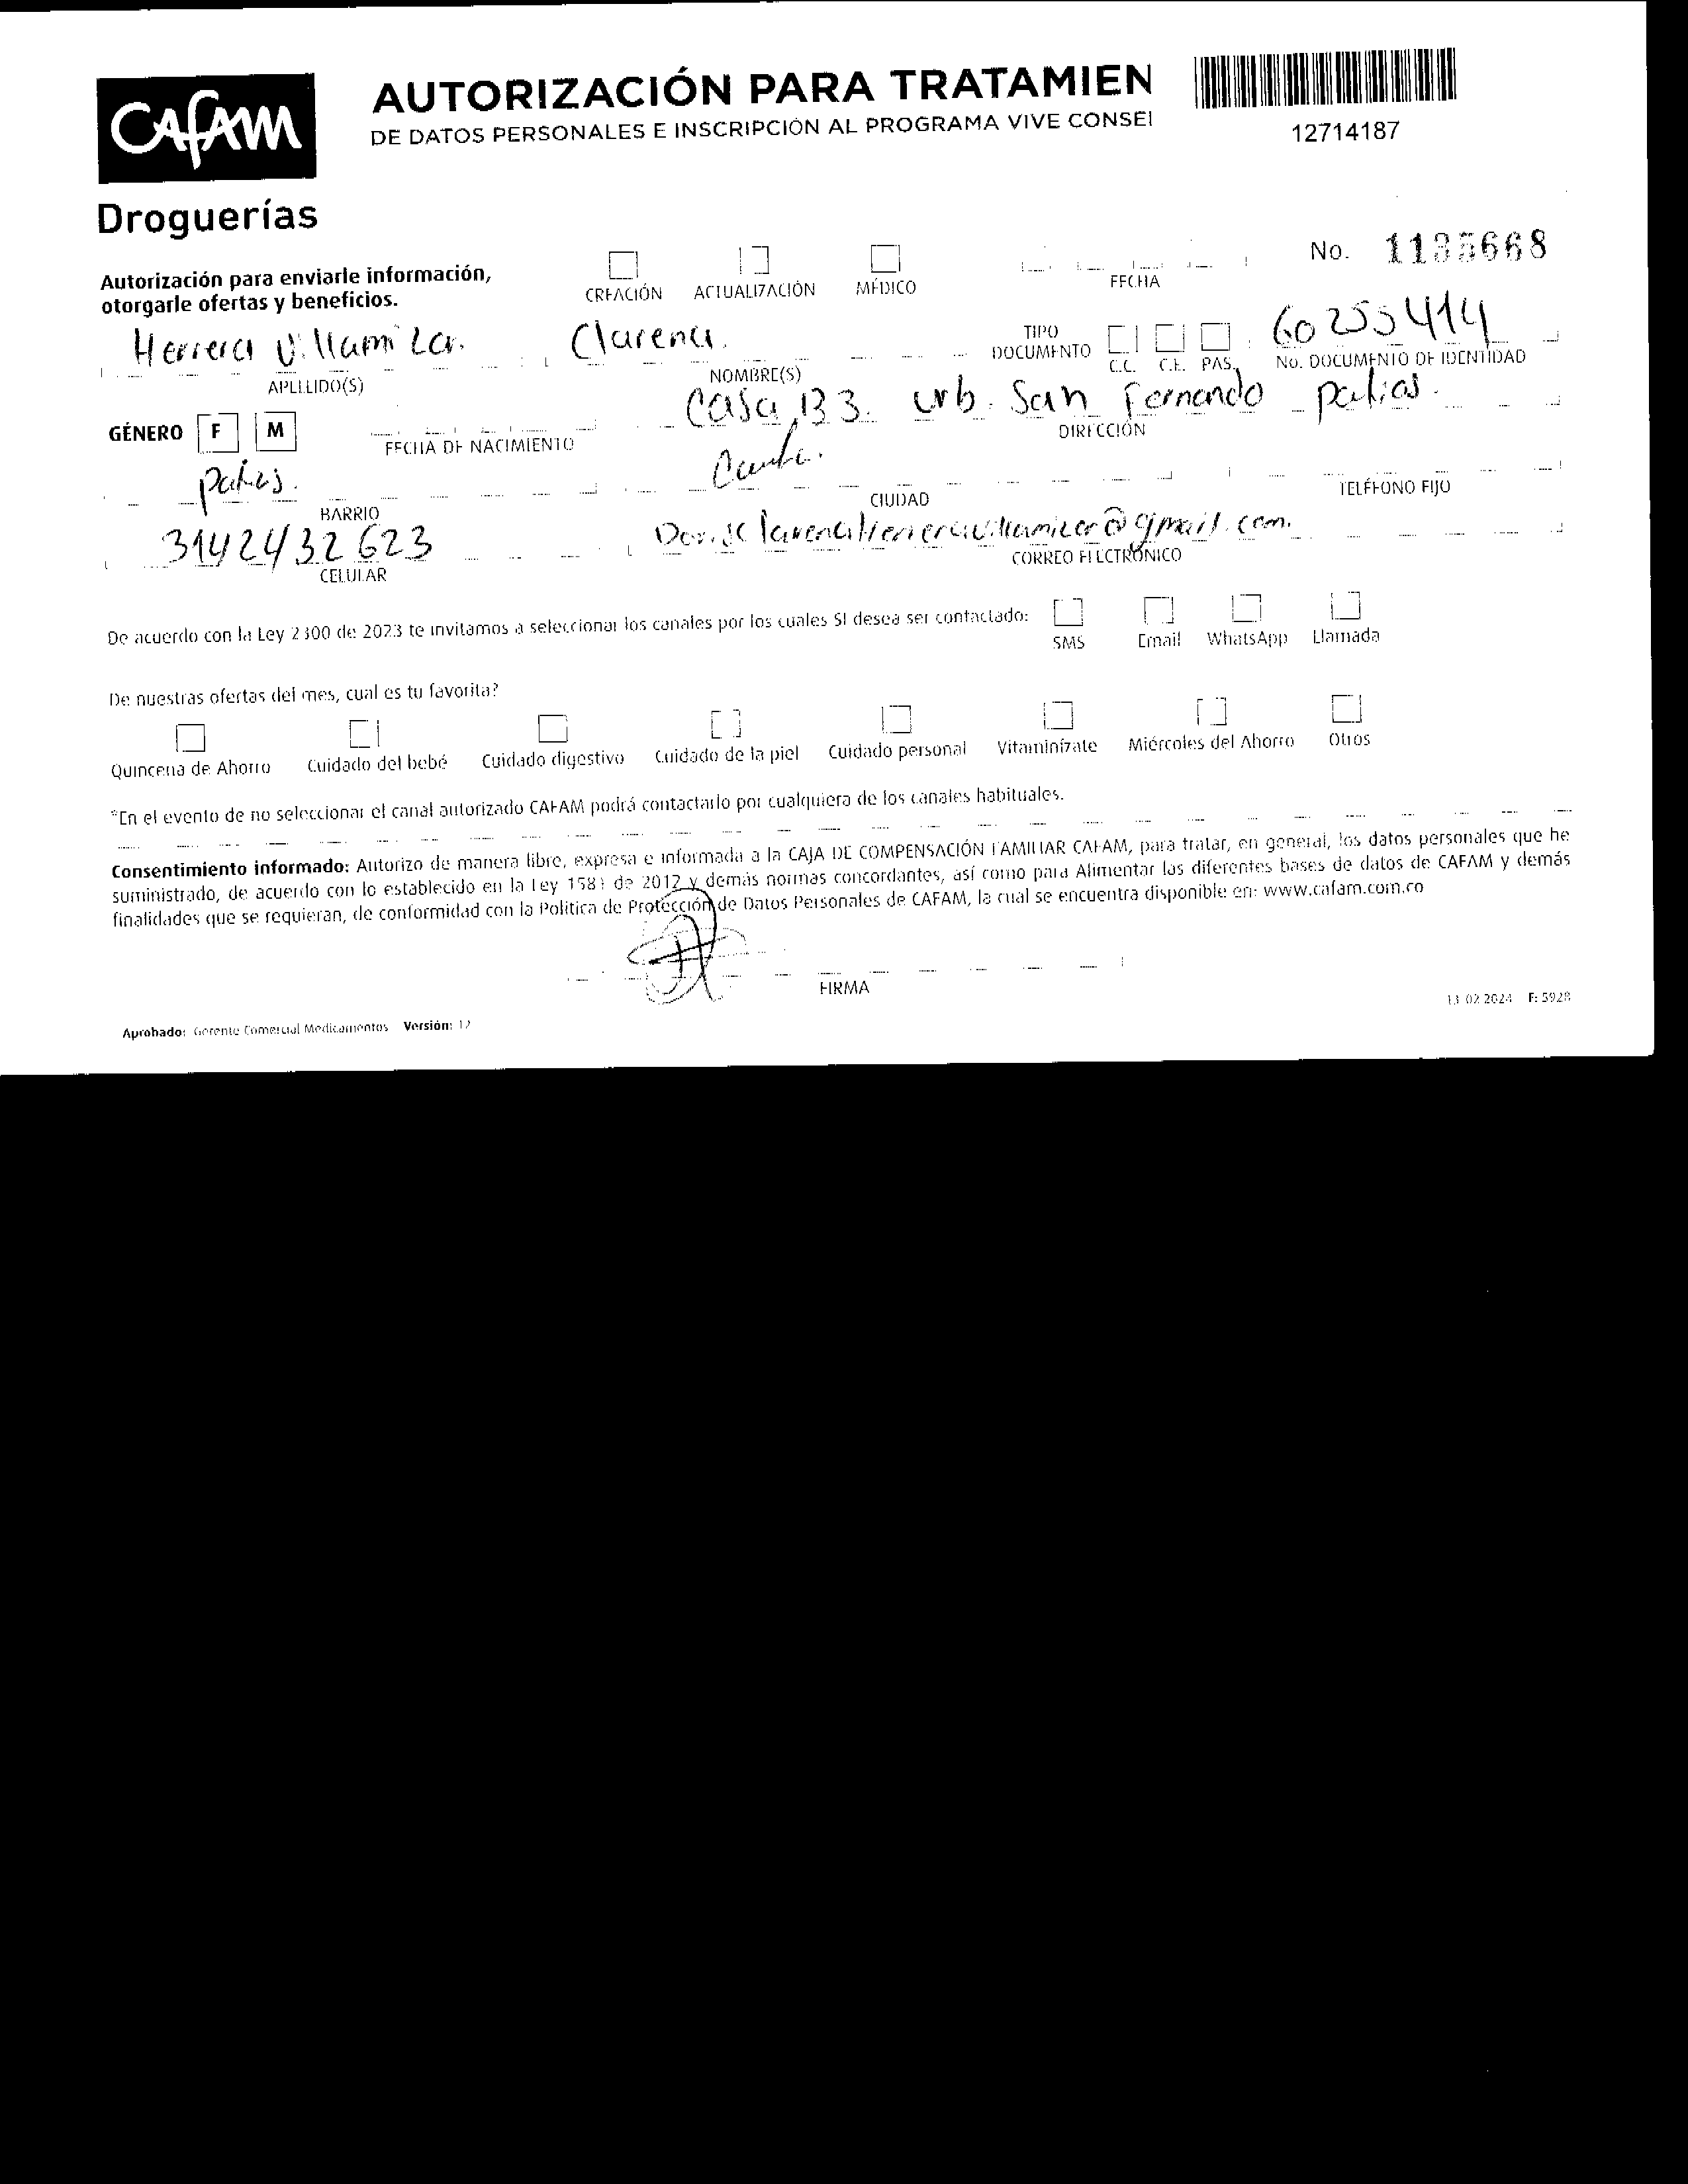 CAFAM
Droguerías
AUTORIZACIÓN PARA TRATAMIEN
DE DATOS PERSONALES E INSCRIPCIÓN AL PROGRAMA VIVE CONSEI
12714187
Autorización para enviarle información,
otorgarle ofertas y beneficios.
CREACIÓN ACTUALIZACIÓN MÉDICO FECHA No. 1135668
Herrera Villamizar. Clarena. TIPO DOCUMENTO C.C. C.E. PAS. 60255414
APELLIDO(S) NOMBRE(S) No. DOCUMENTO DE IDENTIDAD
GÉNERO F M FECHA DE NACIMIENTO Casa 133. urb. San Fernando patios.
DIRECCIÓN
patios.
BARRIO CIUDAD TELÉFONO FIJO
3142432623 Dorisclarenaherreravillamizar@gmail.com.
CELULAR CORREO ELECTRÓNICO
De acuerdo con la Ley 2300 de 2023 te invitamos a seleccionar los canales por los cuales SI desea ser contactado:
SMS Email WhatsApp Llamada
De nuestras ofertas del mes, cual es tu favorita?
Quincena de Ahorro Cuidado del bebé Cuidado digestivo Cuidado de la piel Cuidado personal Vitaminízate Miércoles del Ahorro Otros
*En el evento de no seleccionar el canal autorizado CAFAM podrá contactarlo por cualquiera de los canales habituales.
Consentimiento informado: Autorizo de manera libre, expresa e informada a la CAJA DE COMPENSACIÓN FAMILIAR CAFAM, para tratar, en general, los datos personales que he
suministrado, de acuerdo con lo establecido en la Ley 1581 de 2012 y demás normas concordantes, así como para Alimentar las diferentes bases de datos de CAFAM y demás
finalidades que se requieran, de conformidad con la Política de Protección de Datos Personales de CAFAM, la cual se encuentra disponible en: www.cafam.com.co
FIRMA
13 02 2024 F: 5928
Aprobado: Gerente Comercial Medicamentos Versión: 12